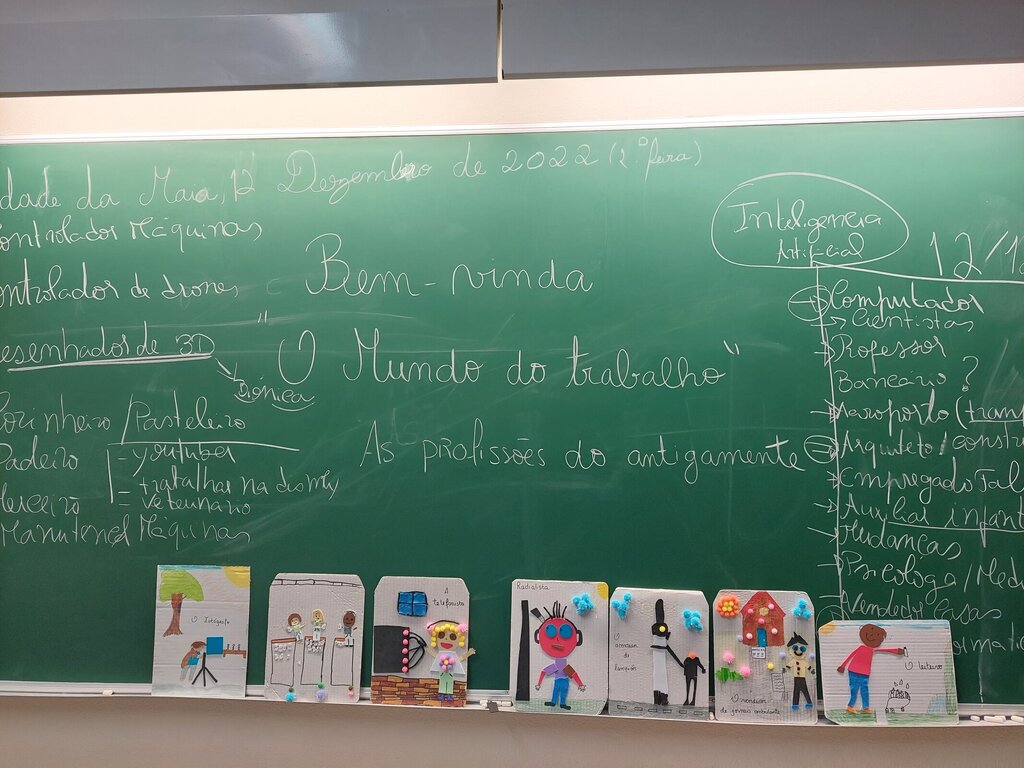 dade da Maia, 12 Dezembro de 2022 (2.ª feira)
ontrolador Máquinas
ontrolador de drones
esenhador de 3D
biónica
ozinheiro / Pasteleiro
Padeiro
- youtuber
= trabalhar na disney
= veterinário
Manutened Máquinas
Bem-vinda
"O Mundo do trabalho"
As profissões do antigamente
Inteligencia
Artificial
12/1
Computador
Cientistas
Professor
Bancário ?
Aeroporto (tran
Arquiteto / constr
Empregado
Auxiliar infant
Mudanças
Psicologa / Méd
Vended casas
ormatic
O fotógrafo
A
telefonista
Radialista
O
acendedor
de
lampiões
O vendedor
de jornais ambulante
O leiteiro